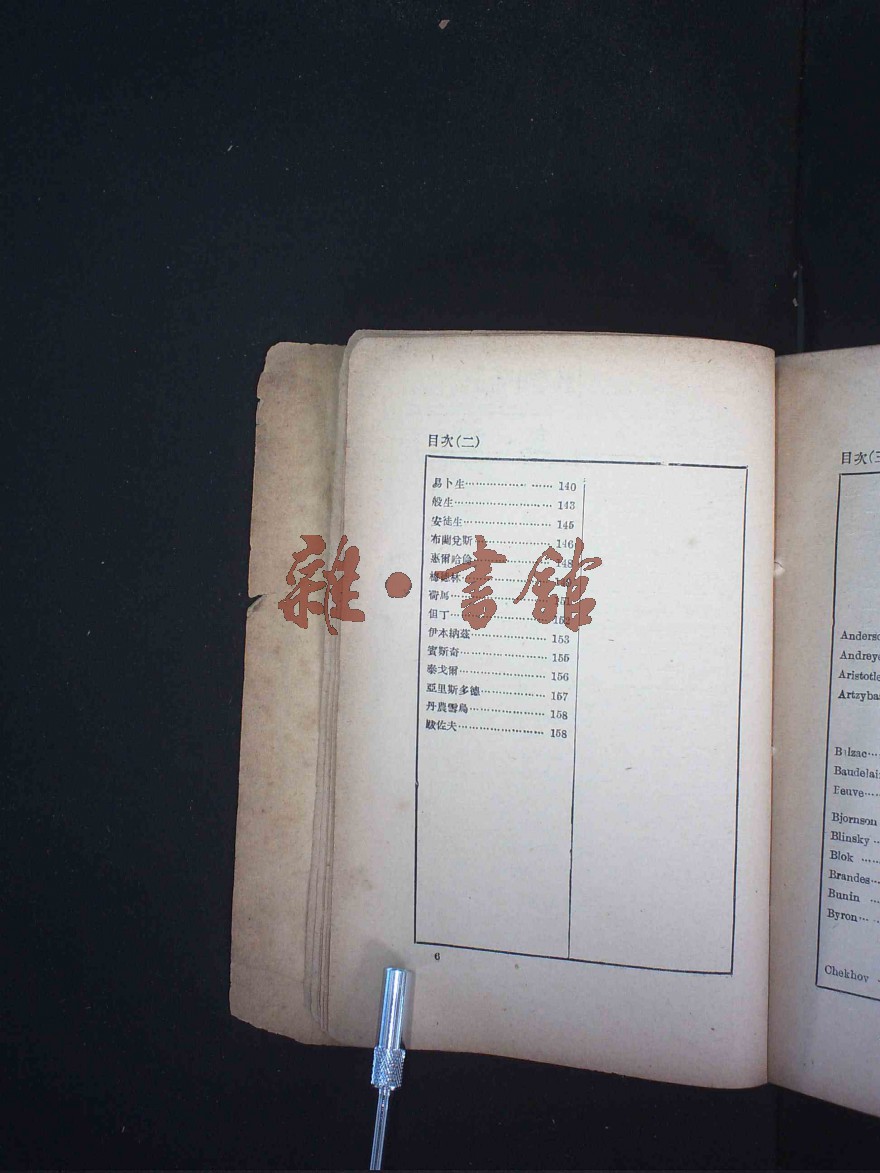 目次(二)
易卜生………………… 140
般生………………… 143
安徒生………………… 145
布蘭兌斯………………… 146
惠爾哈倫………………… 148
梅德林………………… 149
荷馬………………… 151
但丁………………… 152
伊本納茲………………… 153
賓斯奇………………… 155
泰戈爾………………… 156
亞里斯多德………………… 157
丹農雪烏………………… 158
歐佐夫………………… 158
6
雜·書館
目次(三
Anderso
Andreye
Aristotle
Artzybas
Balzac…
Baudelai
Beuve…
Bjornson
Blinsky …
Blok …
Brandes…
Bunin …
Byron…
Chekhov